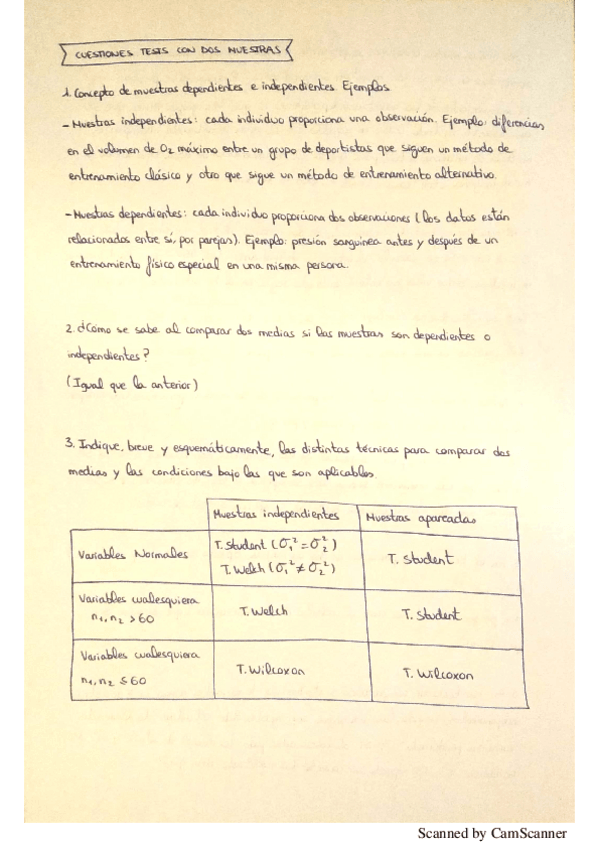 CUESTIONES TESTS CON DOS MUESTRAS
1. Concepto de muestras dependientes e independientes. Ejemplos
- Muestras independientes: cada individuo proporciona una observación. Ejemplo: diferencias
en el volumen de O₂ máximo entre un grupo de deportistas que siguen un método de
entrenamiento clásico y otro que sigue un método de entrenamiento alternativo.
- Muestras dependientes: cada individuo proporciona dos observaciones (los datos están
relacionados entre sí, por parejas). Ejemplo: presión sanguínea antes y después de un
entrenamiento físico especial en una misma persona.
2. ¿Cómo se sabe al comparar dos medias si las muestras son dependientes o
independientes?
(Igual que la anterior)
3. Indique, breve y esquemáticamente, las distintas técnicas para comparar dos
medias y las condiciones bajo las que son aplicables.
Muestras independientes Muestras apareadas
Variables Normales T. Student (σ₁² = σ₂²) T. Student
T. Welch (σ₁² ≠ σ₂²)
Variables cualesquiera T. Welch T. Student
n₁, n₂ > 60
Variables cualesquiera T. Wilcoxon T. Wilcoxon
n₁, n₂ ≤ 60
Scanned by CamScanner